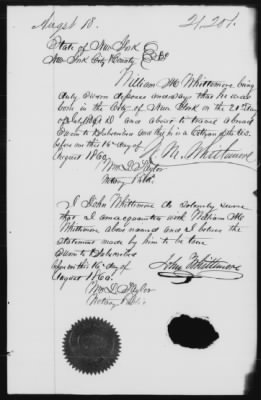 Augst 18.
21,201
State of New York
New York City & County } SS
William M Whittemore being
duly sworn deposes and says that he was
born in the City of New York on the 20th day
of July A D and about to travel abroad
Sworn to & subscribed and that he is a Citizen of the U.S.
before me this 16th day of
August 1860
W. M. Whittemore
Wm D Taylor
Notary Public
I John Whittemore do solemnly swear
that I am acquainted with William M
Whittemore above named and I believe the
statement made by him to be true
Sworn to & subscribed
before me this 16th day of
August 1860
John Whittemore
Wm D Taylor
Notary Public